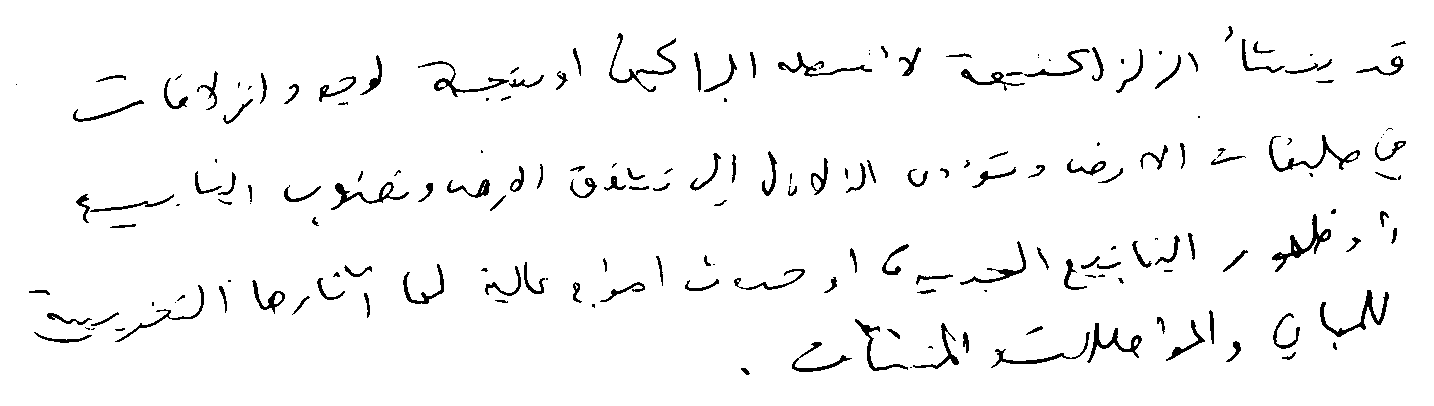 قد ينشأ الزلزال كنتيجة لأنشطة البراكين أو نتيجة لوجود انزلاقات
في طبقات الارض وتؤدى الزلازل إلى تشقق الارض ونضوب الينابيع
أو ظهور الينابيع الجديدة أو حدوث امواج عالية لها آثارها التخريبية
للمباني والمواصلات والمنشآت .